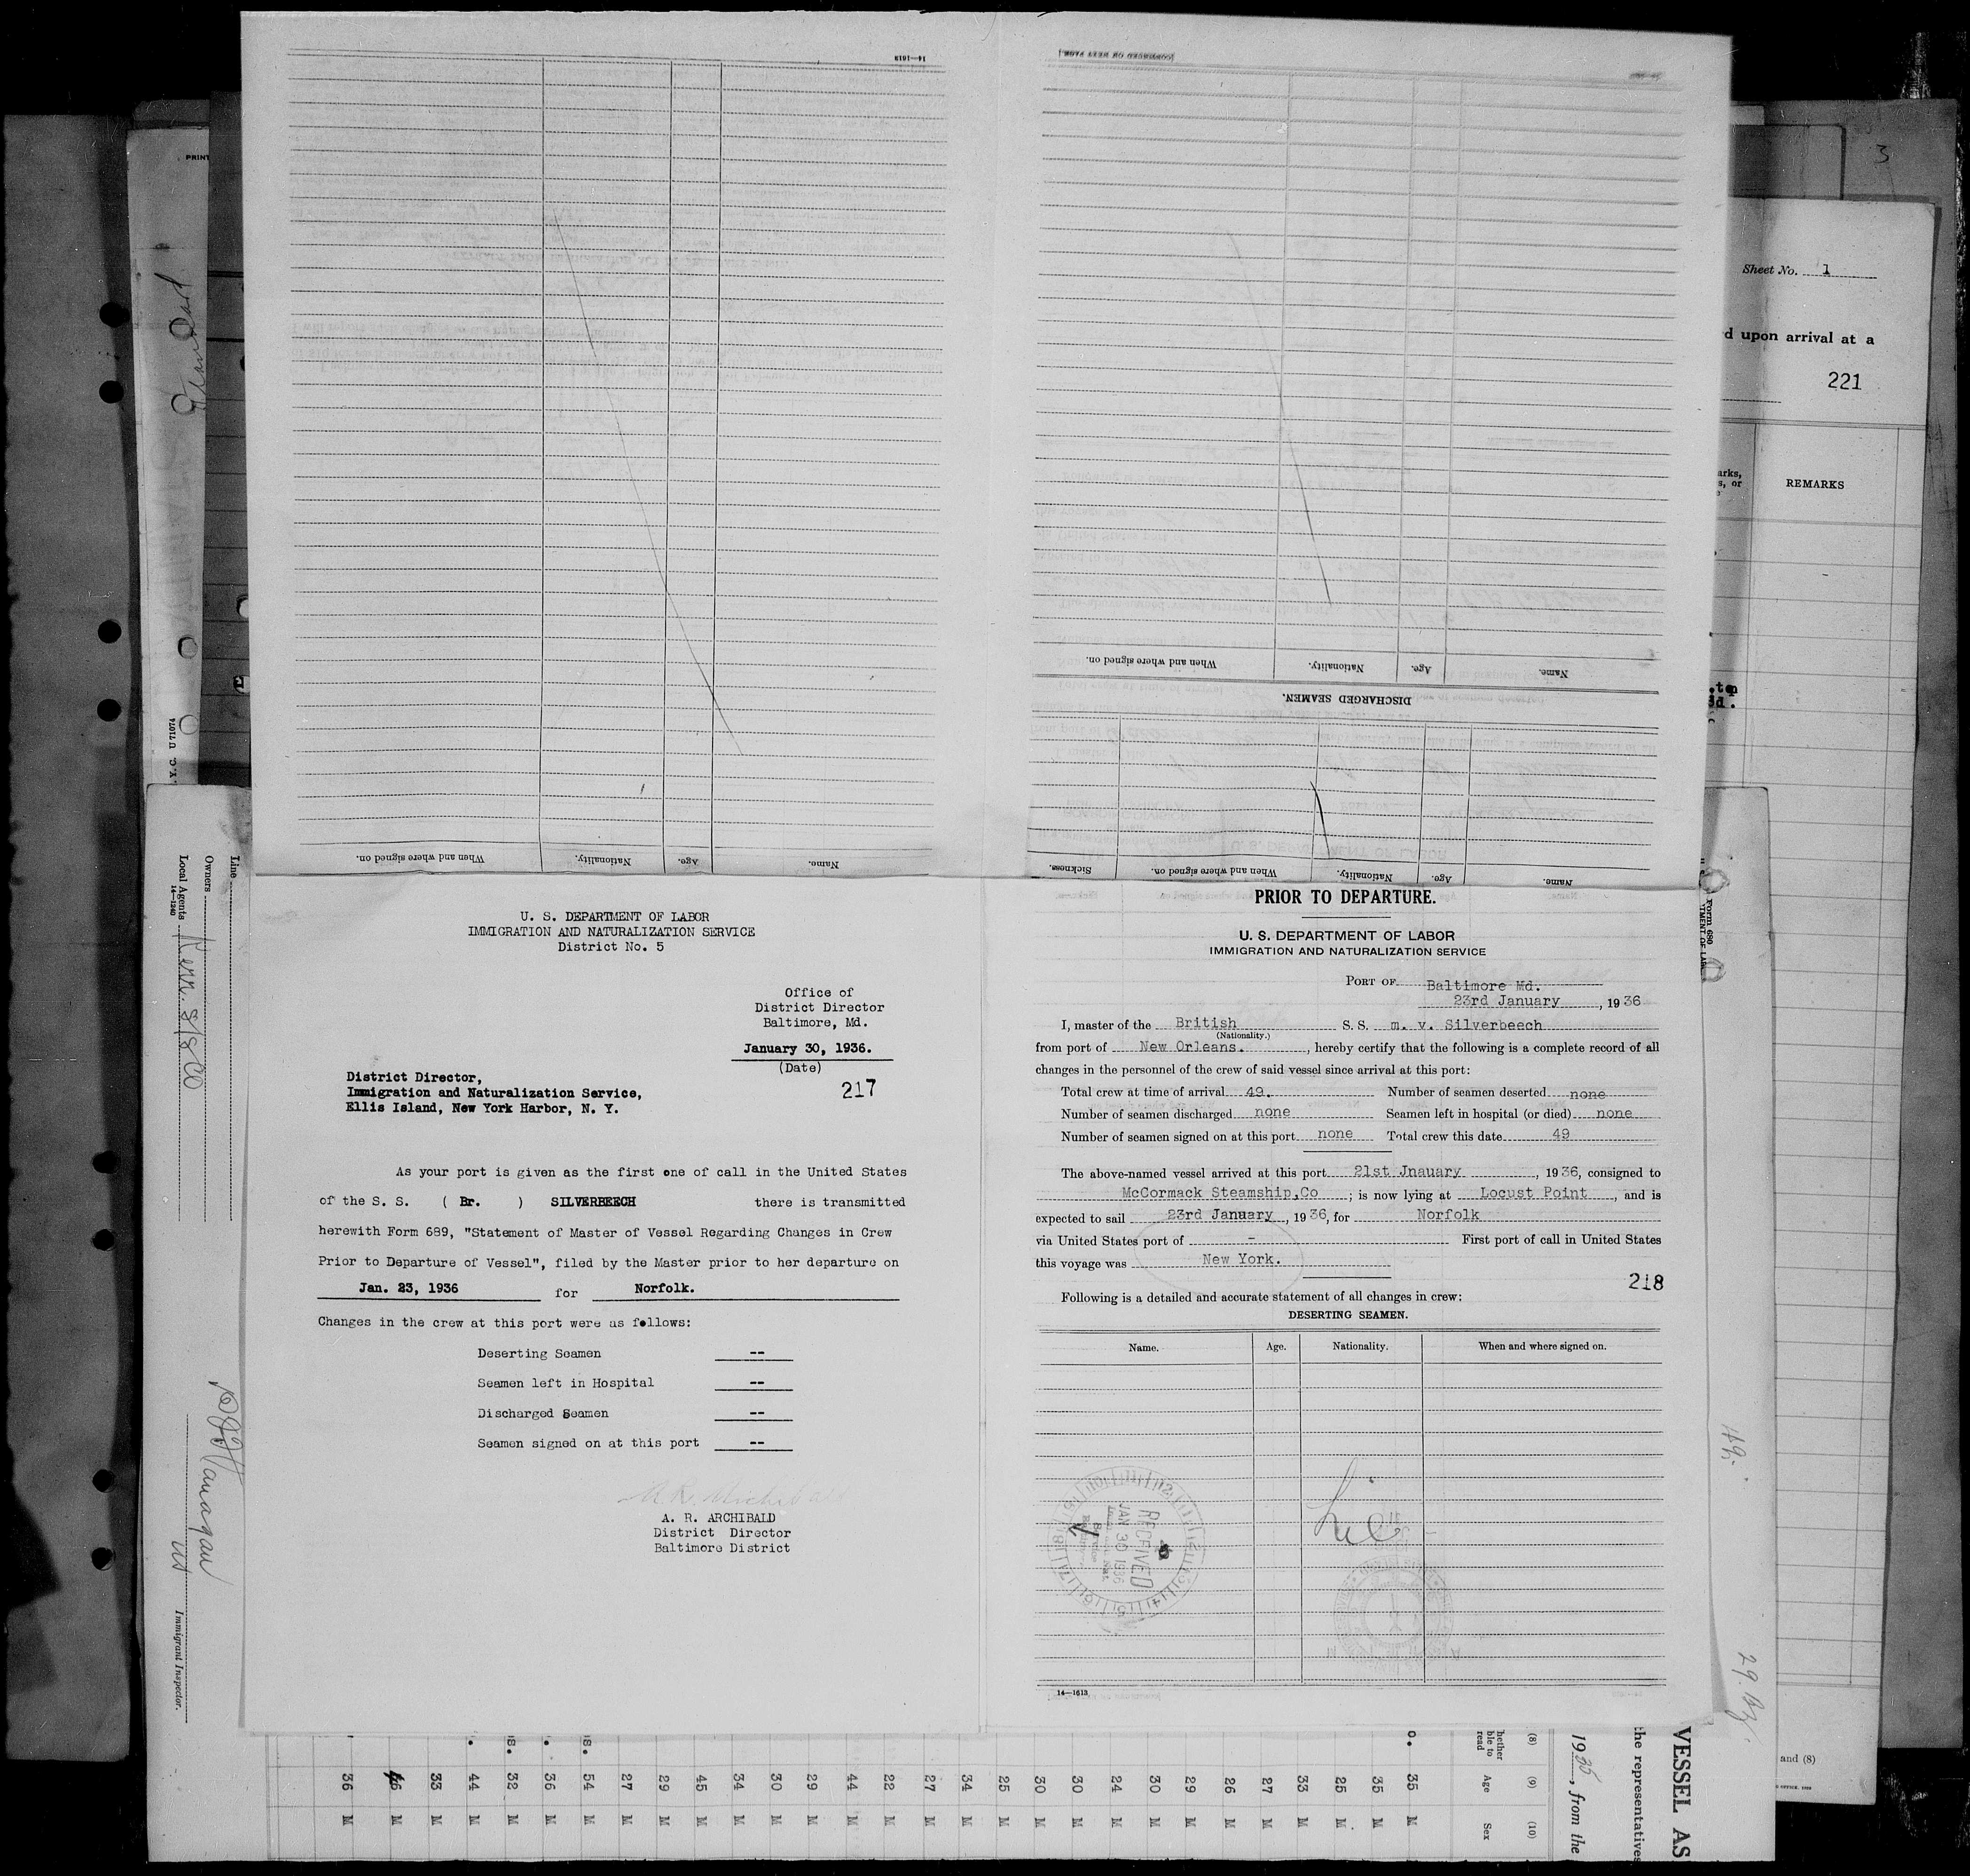 14—1613
(CONTINUED ON NEXT PAGE)
When and where signed on.
Nationality.
Age.
Name.
DISCHARGED SEAMEN.
Sickness.
When and where signed on.
Nationality.
Age.
Name.
When and where signed on.
Nationality.
Age.
Name.
U. S. DEPARTMENT OF LABOR
IMMIGRATION AND NATURALIZATION SERVICE
District No. 5
Office of
District Director
Baltimore, Md.
January 30, 1936.
(Date)
217
District Director,
Immigration and Naturalization Service,
Ellis Island, New York Harbor, N. Y.
As your port is given as the first one of call in the United States
of the S. S. ( Br. ) SILVERBEECH there is transmitted
herewith Form 689, "Statement of Master of Vessel Regarding Changes in Crew
Prior to Departure of Vessel", filed by the Master prior to her departure on
Jan. 23, 1936 for Norfolk.
Changes in the crew at this port were as follows:
Deserting Seamen --
Seamen left in Hospital --
Discharged Seamen --
Seamen signed on at this port --
A. R. ARCHIBALD
District Director
Baltimore District
PRIOR TO DEPARTURE.
U. S. DEPARTMENT OF LABOR
IMMIGRATION AND NATURALIZATION SERVICE
PORT OF Baltimore Md.
23rd January, 1936
I, master of the British S. S. m. v. Silverbeech
(Nationality.)
from port of New Orleans., hereby certify that the following is a complete record of all
changes in the personnel of the crew of said vessel since arrival at this port:
Total crew at time of arrival 49. Number of seamen deserted none
Number of seamen discharged none Seamen left in hospital (or died) none
Number of seamen signed on at this port none Total crew this date 49
The above-named vessel arrived at this port 21st Jnauary, 1936, consigned to
McCormack Steamship,Co; is now lying at Locust Point, and is
expected to sail 23rd January, 1936, for Norfolk
via United States port of - First port of call in United States
this voyage was New York.
218
Following is a detailed and accurate statement of all changes in crew:
DESERTING SEAMEN.
Name. Age. Nationality. When and where signed on.
RECEIVED
JAN 30 1936
14—1613
3
Sheet No. 1
d upon arrival at a
221
arks,
s, or
REMARKS
.ten
3d.
Form 680
and (8)
PRINT
Y. C. U 71074
Line
Owners
Local Agents Kerr. S/S Co
14—1240
Immigrant Inspector.
VESSEL AS
the representatives
, from the
(8) (9) (10)
hether
ble to
read
Age
Sex
35 M
35 M
25 M
33 M
27 M
26 M
29 M
30 M
24 M
30 M
30 M
25 M
34 M
27 M
22 M
44 M
29 M
30 M
34 M
45 M
29 M
27 M
54 M
36 M
32 M
44 M
33 M
46 M
36 M